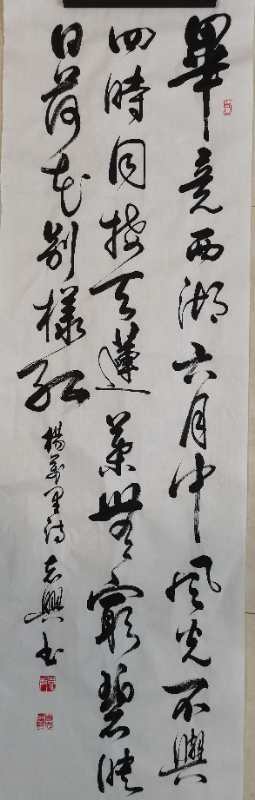 畢竟西湖六月中風光不與
四時同接天蓮葉無窮碧映
日荷花別樣紅
楊萬里詩 志興書